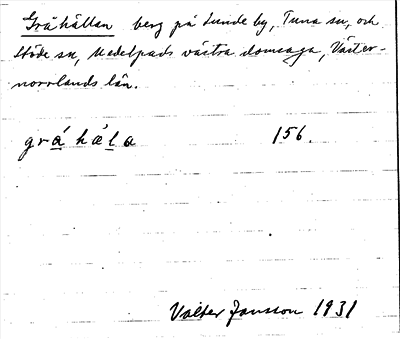 Gråhällan berg på Sunde by, Tuna sn, och
Stöde sn, Medelpads västra domsaga, Väster-
norrlands län.
gråhä́la 156.
Valter Jansson 1931